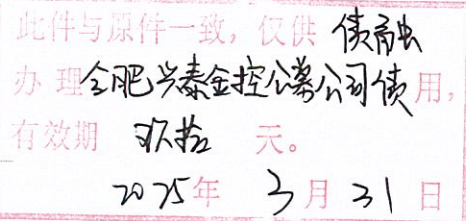 此件与原件一致，仅供 债融
办理合肥兴泰金控公募公司债用，
有效期 玖拾 天。
2025年 3月31日